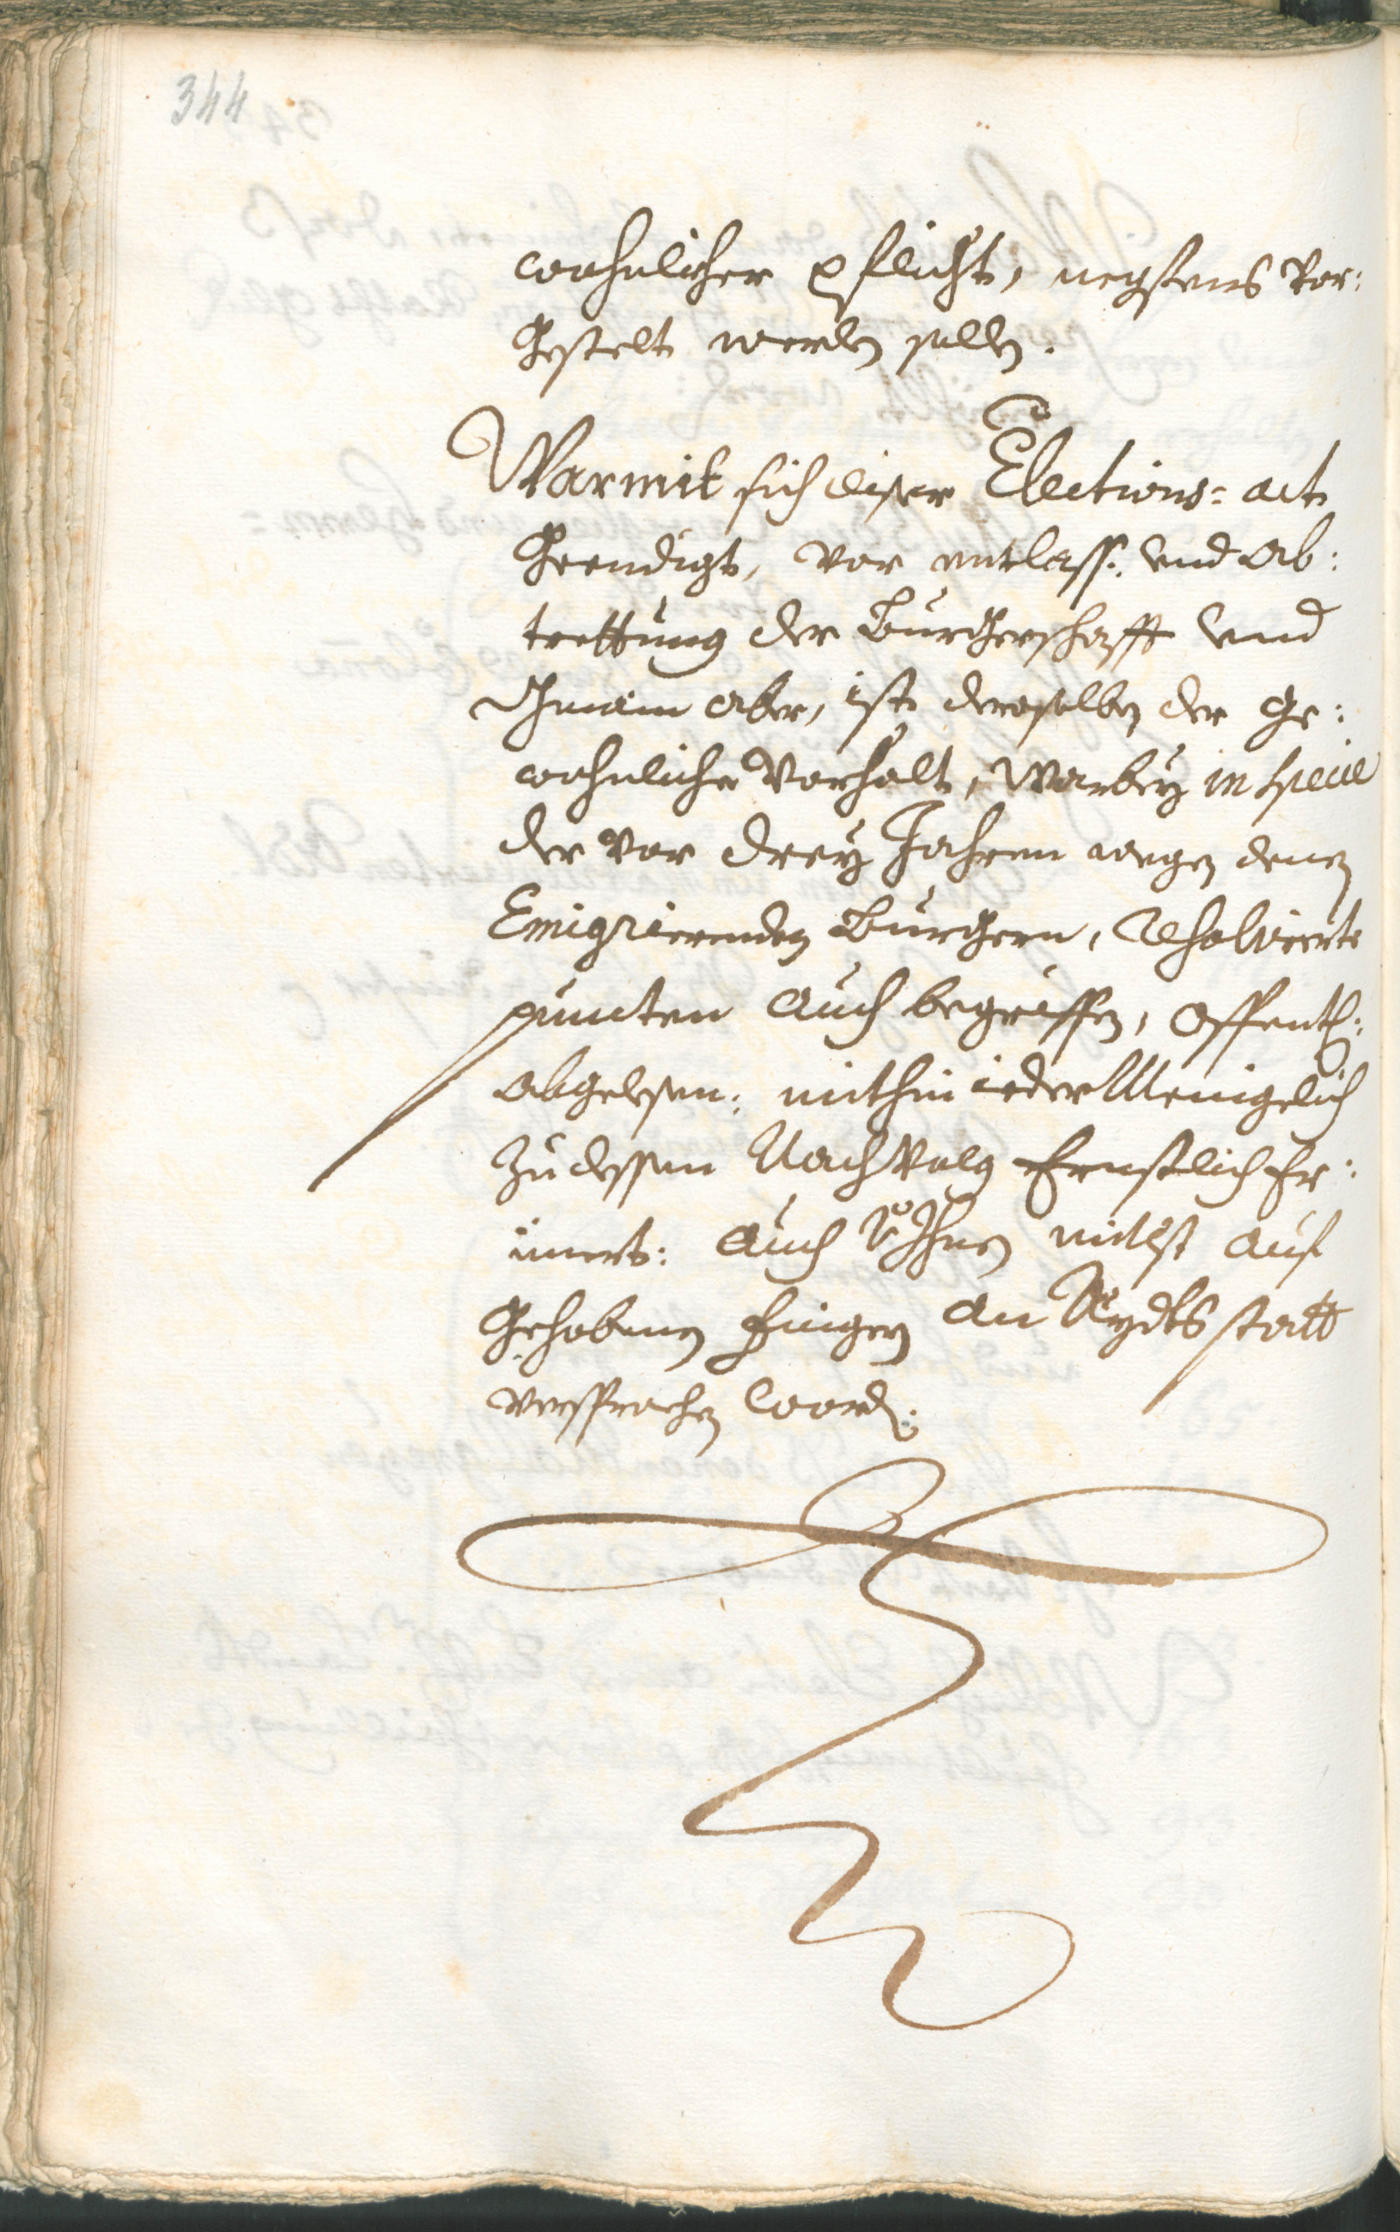 344
wohnlicher pflicht, negstens vor:
gestelt werden sollen.
Warmit sich diser Elections= act
geendigt, vor entlass: und ab:
trettung der Burgerschafft und
Gmain aber, ist deroselben der ge:
wohnliche Vorhalt, warbey in specie
der vor drey Jahren wegen denen
Emigrierenden Burgern, resolvierte
puncten auch begriffen, offentl:
abgelesen: mithin iedermenigelich
zu dessen Nachvolg Ernstlich er:
innert: auch von Ihnen mitlst auf
gehobnen fingern an Aydts statt
versprochen word: